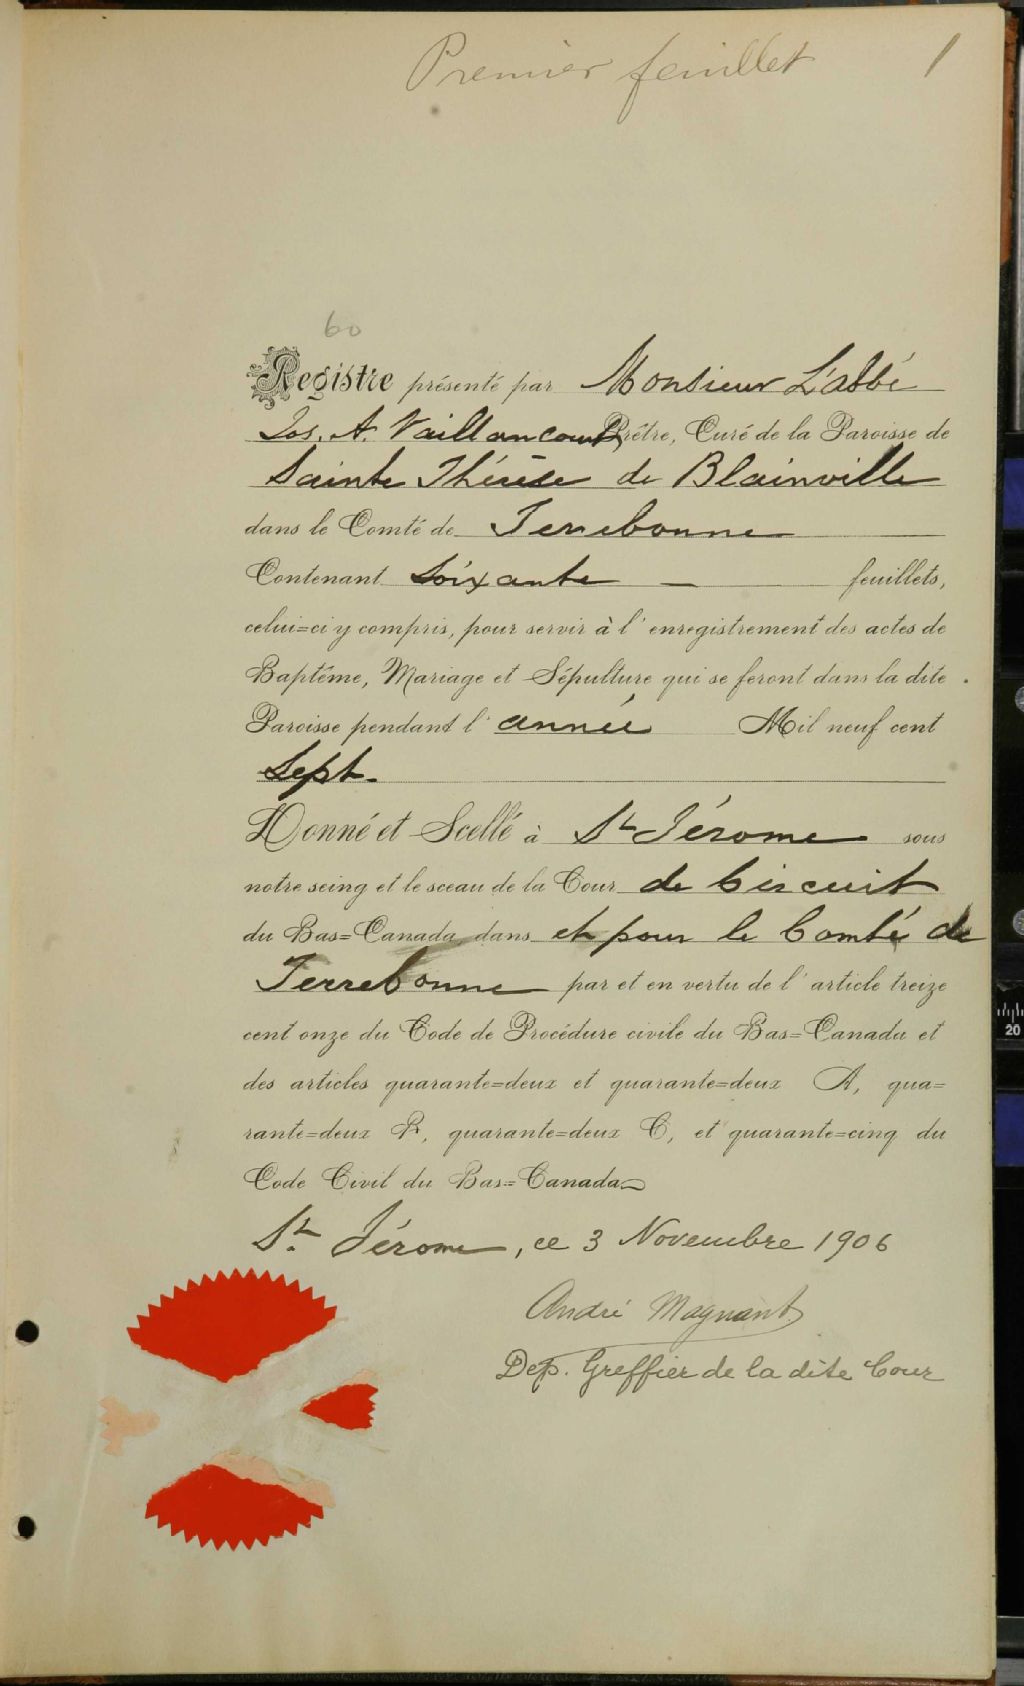 Premier feuillet 1
60
Registre présenté par Monsieur L'abbé
Jos. A. Vaillancourt Prêtre, Curé de la Paroisse de
Sainte Thérèse de Blainville
dans le Comté de Terrebonne
Contenant Soixante — feuillets,
celui=ci y compris, pour servir à l'enregistrement des actes de
Baptême, Mariage et Sépulture qui se feront dans la dite
Paroisse pendant l'année Mil neuf cent
Sept.
Donné et Scellé à St Jérome sous
notre seing et le sceau de la Cour de Circuit
du Bas=Canada dans et pour le Comté de
Terrebonne par et en vertu de l'article treize
cent onze du Code de Procédure civile du Bas=Canada et
des articles quarante=deux et quarante=deux A, qua=
rante=deux B, quarante=deux C, et quarante=cinq du
Code Civil du Bas=Canada
St. Jérome, ce 3 Novembre 1906
André Magnant
Dep. Greffier de la dite Cour
20